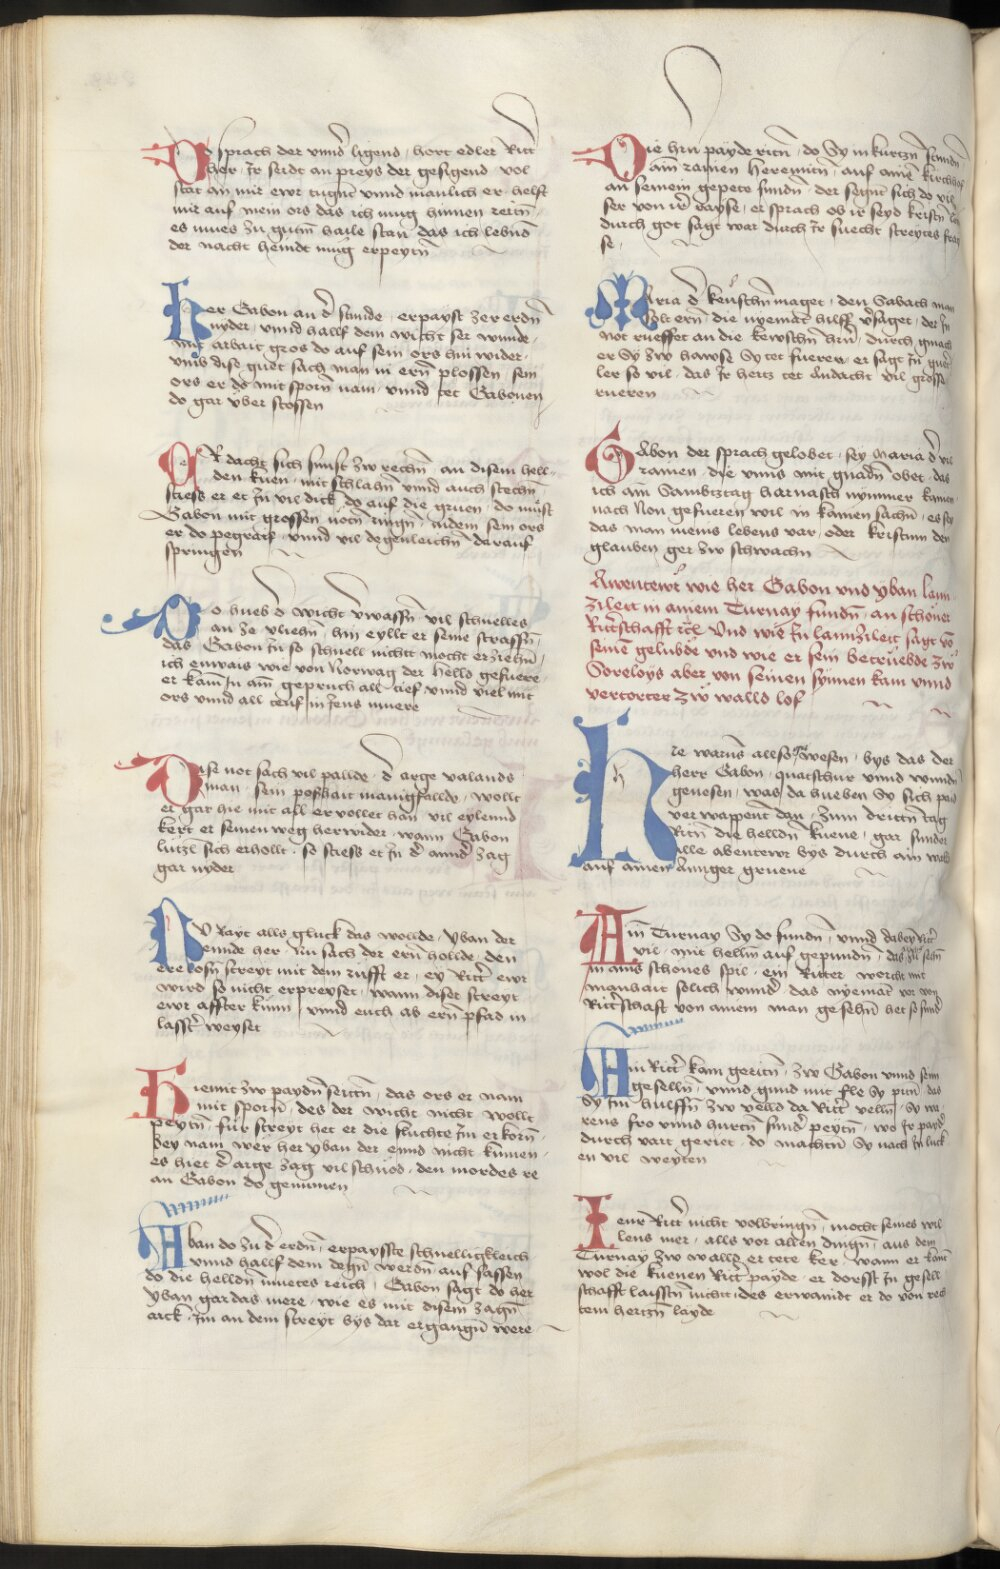 Do sprach der vnnd ligend, hort edler Ritter
her, Ir seidt an preys der gesigend vol
stat an mir ewr tugnt vnnd manlich er, helft
mir auf mein ors das ich mug hinnen reitn̄
es mues zu gutm̄ haile stan das ich lebnd
der nacht heindt mug erpeytn̄
Her Gabon an d' stunde, erpayst zer erdn̄
nyder, vnnd hallf dem wicht ser wunde,
mit arbait gros do auf sein ors hin wider,
vmb dise guet sach man in ern̄ plossen, sein
ors er do mit sporn nam, vnnd tet Gabonen
do gar vber stossen
ER dacht sich sunst zw rechn̄, an disem hell-
den kuen, mit schlahn̄ vnnd auch stechn̄,
stiess er et In vil dick, do auf die gruen, do muest
Gabon mit grossen notn̄ ringn̄, indem sein ors
er do pegraif, vnnd vil degenleichn̄ darauf
springen
Do hueb d' wicht vwaffn̄ vil schnelles
an ze vliehn̄, hin eyllt er seine strassn̄
das Gabon In so schnell nicht mocht erziehn̄,
ich enwais wie von Norwag der helld gefuere,
er kam In am̄ gepruch all tief vnnd viel mit
ors vnnd all teuf in Iens muere
Dise not sach vil pallde, d' arge valands
man, sein poshait manigfallde, wollt
er gar hie mit all er vollet han, vil eylennd
kert er seinen weg herwider, wann Gabon
lutzl sich erhollt, so stiess et In d' annd' zag
gar nyder
NV Rayt alls gluck das wollde, Yban der
ennde her, Nu sach der ern̄ hollde, den
erekosn̄ streyt mit dem rufft er, ey Ritt' ewr
wird so nicht erpreyset, wann diser streyt
ewr affter kunn, vnnd euch ab ern̄ pfad in
lasst' weyset
Hiemit zw paydn̄ seittn̄, das ors er nam
mit sporn̄, des der wicht nicht wollt
peytn̄, fur streyt het er die fluchte Im erkorn̄,
Bey nam, wer her Yban der ennd nicht kumen,
es hiet d' arge zag vil schnod, den mordes re
an Gabon do genumen
Yban do zu d' erdn̄, erpayste schnelligkleich
vnnd hallf dem degn̄ werdn̄ auf sassen
do die helldn̄ muetes reich, Gabon sagt do her
Yban gar das mere, wie es mit disem zagn̄
arck, Im an dem streyt bys dar ergangn̄ were
Die hrn̄ payde ritn̄, do Sy in kurtzn̄ stundn̄
am̄ rainen Heremitn̄, auf aine' kirchhof
an seinem gepete fundn̄, der segnt sich do vil
ser von ir' rayse, er sprach ob ir seyd kristn̄
durch got sagt war durch Ir suecht streytes
se,
MAria d' keuschn̄ maget, den Sabath man
solt ern̄, die nyemāt hilff v'saget, der In
not rueffet an die kewschn̄ hrn̄, durch gmach
er Sy zw hawse Sy tet fueren, er sagt In
ler so vil, das Ir hertz tet Andacht vil grosse
rueren
GAbon der sprach gelobet, sey Maria d' vil
rainen, die vnns mit gnadn̄ obet, das
ich am̄ Sambtztag harnasch nymmer kainen
nach Non gefueren wil in kainen sachn̄, es sey
das man meins lebens var, oder kristum den
glauben ger zw schwachn̄
Awentewr wie her Gabon vnd yban lann-
zilett in ainem Turnay fundn̄, an schoner
Ritt'schafft &c̄ Vnd wie In lannzilett sagt vo
seine' gelubde vnd wie er sein betruebde zw
Soreloys aber von seinen synnen kam vnnd
vertorter zw walld lof
Hie warn̄s allso gwesen, bys das der
herr Gabon, quatschur vnnd wundn̄
genesen, was, da hueben Sy sich paid
verwappent dan, Zum drittn̄ tag
Ritn̄ die helldn̄ kuene, gar sunder
alle abentewr bys durch ain walld
auf ainen Annger gruene
Ain Turnay Sy do fundn̄, vnnd dabey Ritt'
vil, mit hellm̄ auf gepundn̄, das
in ains schones spil, ein Ritter worcht mit
manhait solich wund', das nyemāt vor von
Ritt'schaft von ainem man gesehn̄ het so sund'
Ain Ritt' kam geritn̄, zw Gabon vnnd sein
geselln̄, vnnd gund mit fle Sy pittn̄ das
Sy Im hulffn̄ zw velld da Ritt' velln̄, Sy wa-
rens fro vnnd hurtn̄ sund' peytn̄, wo Ir payd'
durch vart geriet, do machtn̄ Sy nach In luck-
en vil weyten
Iener Ritt' nicht volbringn̄, mocht seines wil-
lens mer, alls vor allen dingn̄, aus dem
Turnay zw walld er tete ker, wann er kant
wol die kuenen Ritt' payde, er dorfft In gesell-
schafft laistn̄ nicht, des erwandt er do von rech-
tem hertzn̄ layde